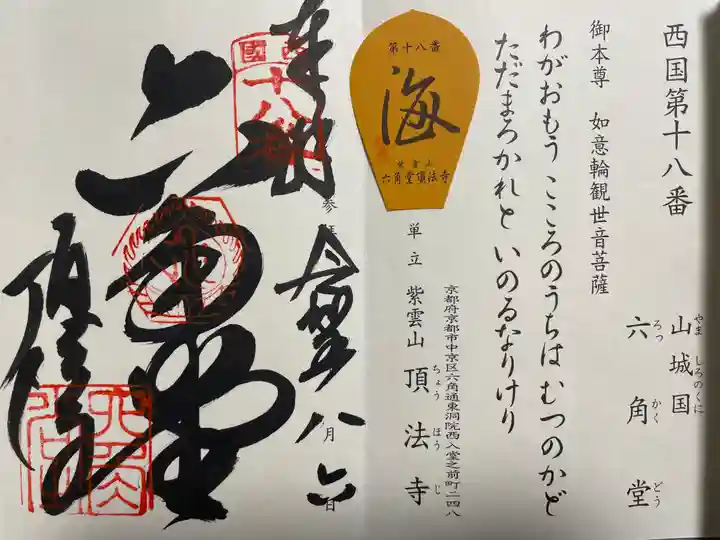 西国第十八番
山城国
やま しろのくに
六角堂
ろっ かく どう
御本尊 如意輪観世音菩薩
わがおもう こころのうちは むつのかど
ただまろかれと いのるなりけり
京都府京都市中京区六角通東洞院西入堂之前町二四八
単立 紫雲山 頂法寺
ちょう ほう じ
第十八番
海
紫雲山
六角堂頂法寺
奉拝
西國
十八番
参拝
八月六日
六角堂
頂法寺